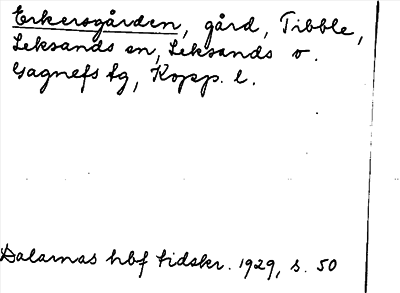 Erkersgården, gård, Tibble,
Leksands sn, Leksands o.
Gagnefs tg, Kopp. l.
Dalarnas hbf tidskr. 1929, s. 50